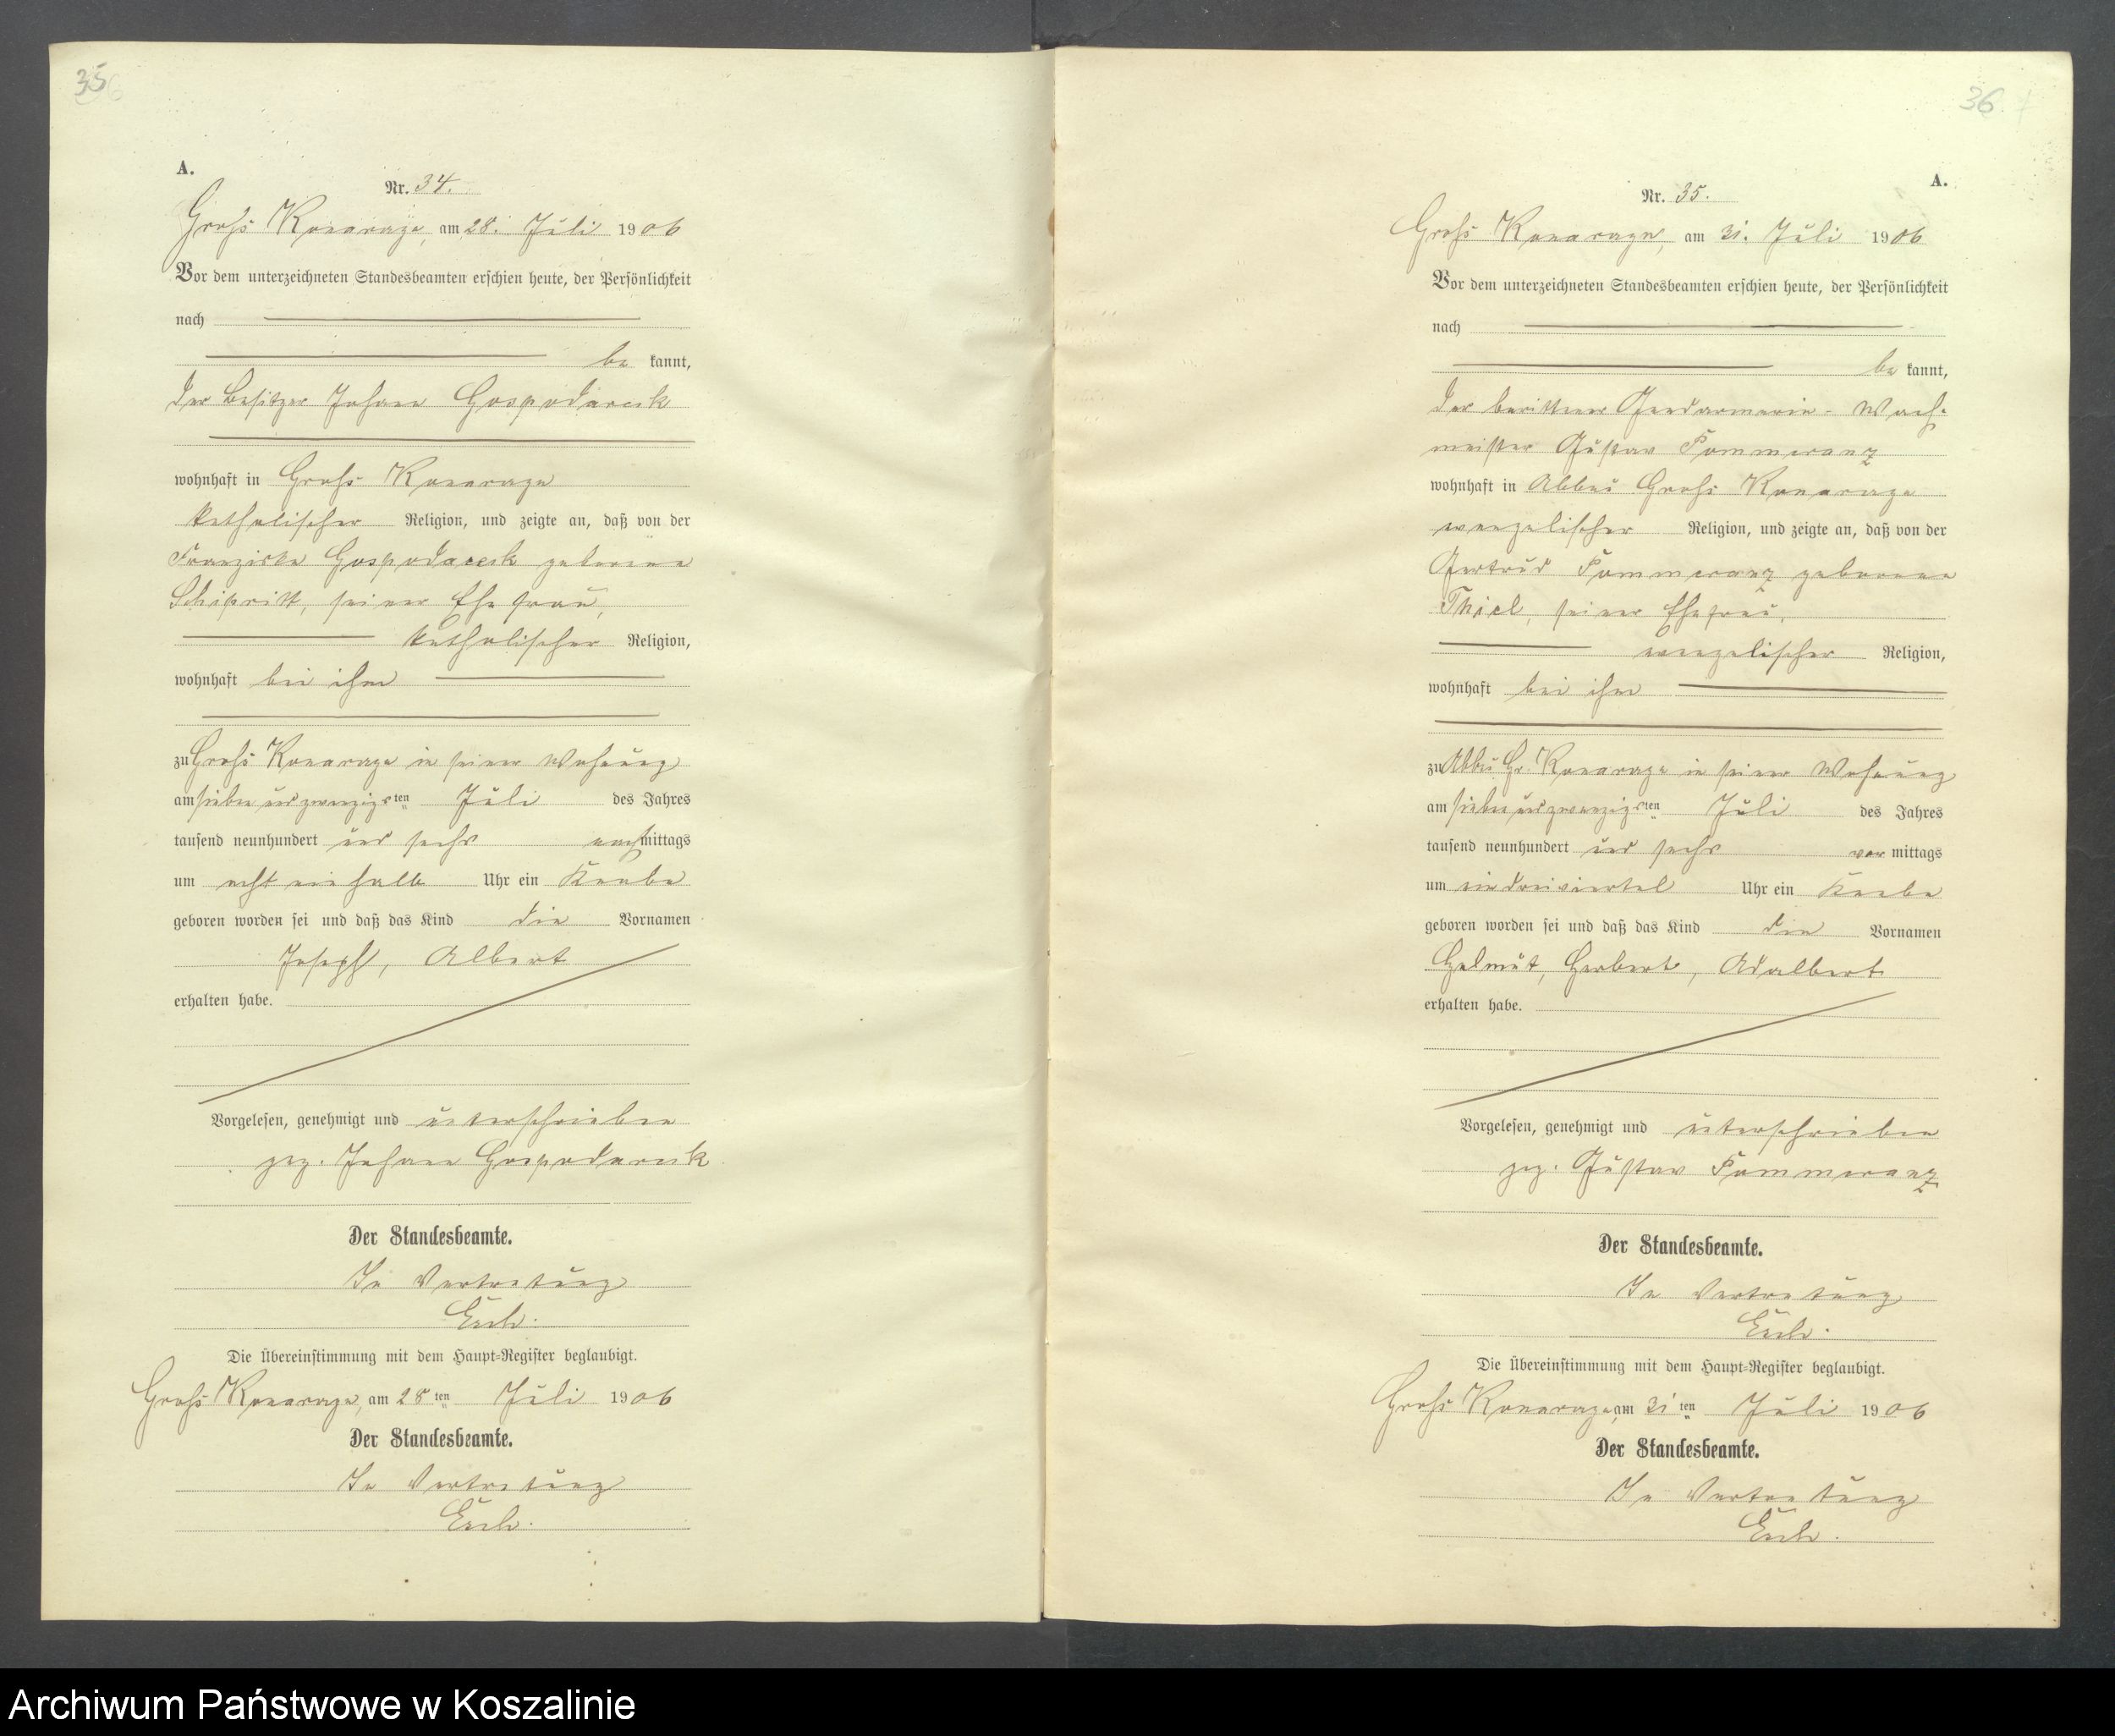 35
A.
Nr. 34.
Groß Konarczyn, am 28. Juli 1906
Vor dem unterzeichneten Standesbeamten erschien heute, der Persönlichkeit
nach
be kannt,
der Besitzer Johann Gospodarek
wohnhaft in Groß
katholischer Religion, und zeigte an, daß von der
Franziska Gospodarek geborene
seiner Ehefrau,
katholischer Religion,
wohnhaft bei ihm
zu Groß in seiner Wohnung
am sieben und zwanzigsten Juli des Jahres
tausend neunhundert und sechs nachmittags
um acht ein halb Uhr ein Knabe
geboren worden sei und daß das Kind die Vornamen
Joseph, Albert
erhalten habe.
Vorgelesen, genehmigt und unterschrieben
gez. Johann Gospodarek
Der Standesbeamte.
In Vertretung
Die Übereinstimmung mit dem Haupt-Register beglaubigt.
Groß am 28ten Juli 1906
Der Standesbeamte.
In Vertretung
36
A.
Nr. 35.
Groß am 31. Juli 1906
Vor dem unterzeichneten Standesbeamten erschien heute, der Persönlichkeit
nach
be kannt,
der berittene Gendarmerie-Wacht-
meister Gustav Pommeranz
wohnhaft in Abbau Groß
evangelischer Religion, und zeigte an, daß von der
Gertrud Pommeranz geborene
Thiel, seiner Ehefrau,
evangelischer Religion,
wohnhaft bei ihm
zu Abbau Gr. in seiner Wohnung
am sieben und zwanzigsten Juli des Jahres
tausend neunhundert und sechs vor mittags
um ein dreiviertel Uhr ein Knabe
geboren worden sei und daß das Kind die Vornamen
Helmut, Herbert, Adalbert
erhalten habe.
Vorgelesen, genehmigt und unterschrieben
gez. Gustav Pommeranz
Der Standesbeamte.
In Vertretung
Die Übereinstimmung mit dem Haupt-Register beglaubigt.
Groß am 31ten Juli 1906
Der Standesbeamte.
In Vertretung
Archiwum Państwowe w Koszalinie